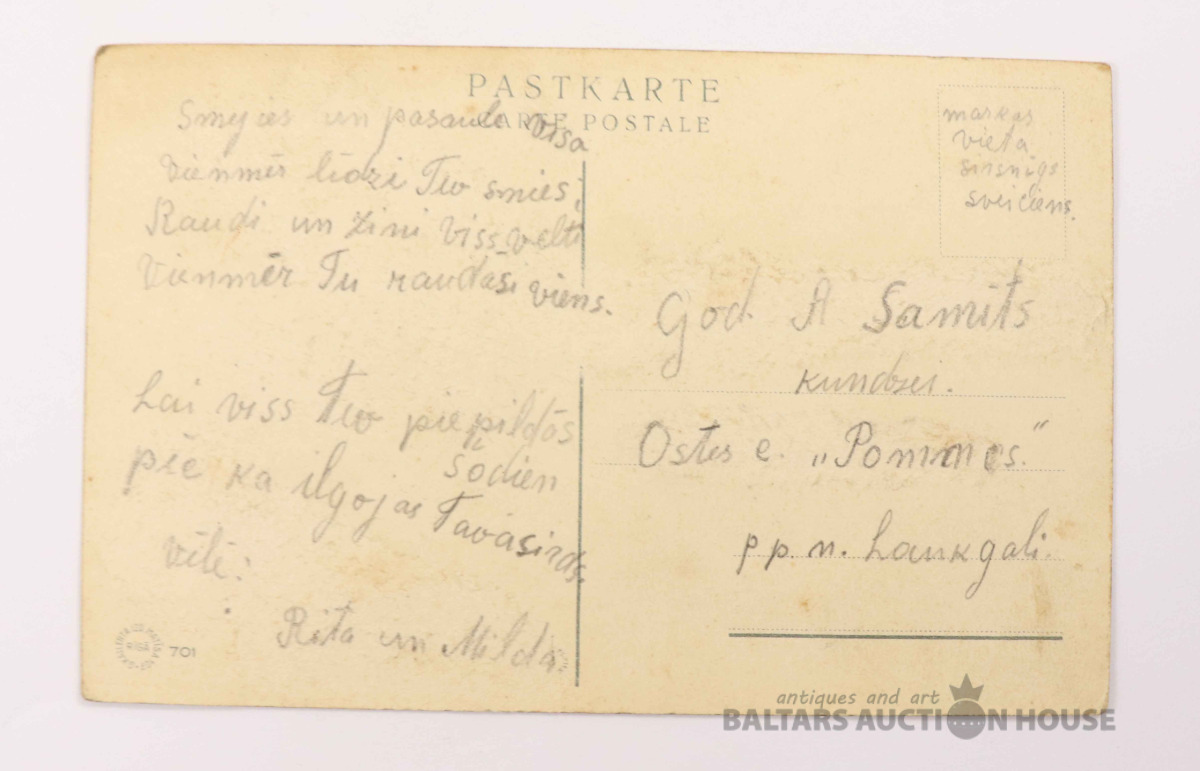 PASTKARTE
CARTE POSTALE
Smejies un pasaule visa
Vienmēr līdzi Tev smies;
Raudi un zini viss velti
Vienmēr Tu raudāsi viens.
Lai viss Tev piepildās
šodien
pēc ka ilgojas Tava sirds.
vēlē:
Rita un Milda.
markas
vieta
sirsnīgs
sveiciens.
God. A Samīts
kundzei.
Ostes e. „Pommes.“
p p. n. Laukgali.
701
antiques and art
BALTARS AUCTION HOUSE